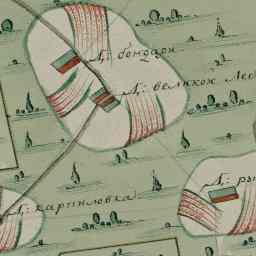 Д: бондари
Д: великои Лед
Д: карпиловка
Д: ры